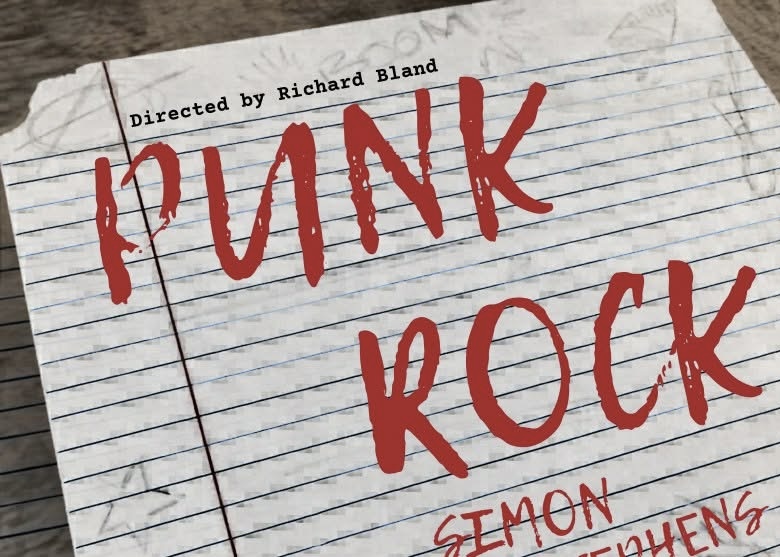 Directed by Richard Bland
PUNK
ROCK
SIMON
STEPHENS